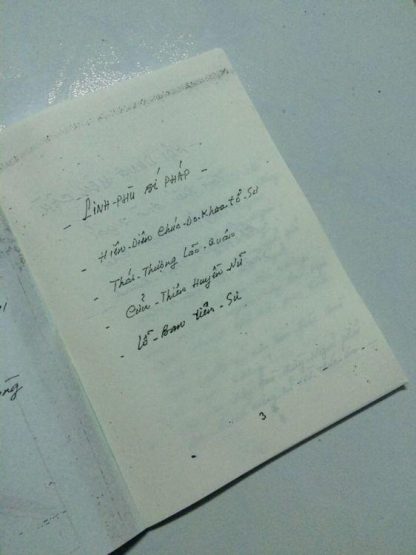 - LINH-PHÙ BÍ PHÁP -
- Hiên-Diên Chúc-Do-Khoa-Tổ-Sư
- Thái-Thượng Lão-Quân
- Cửu-Thiên Huyền-Nữ
- Lỗ-Ban Tiên-Sư
3